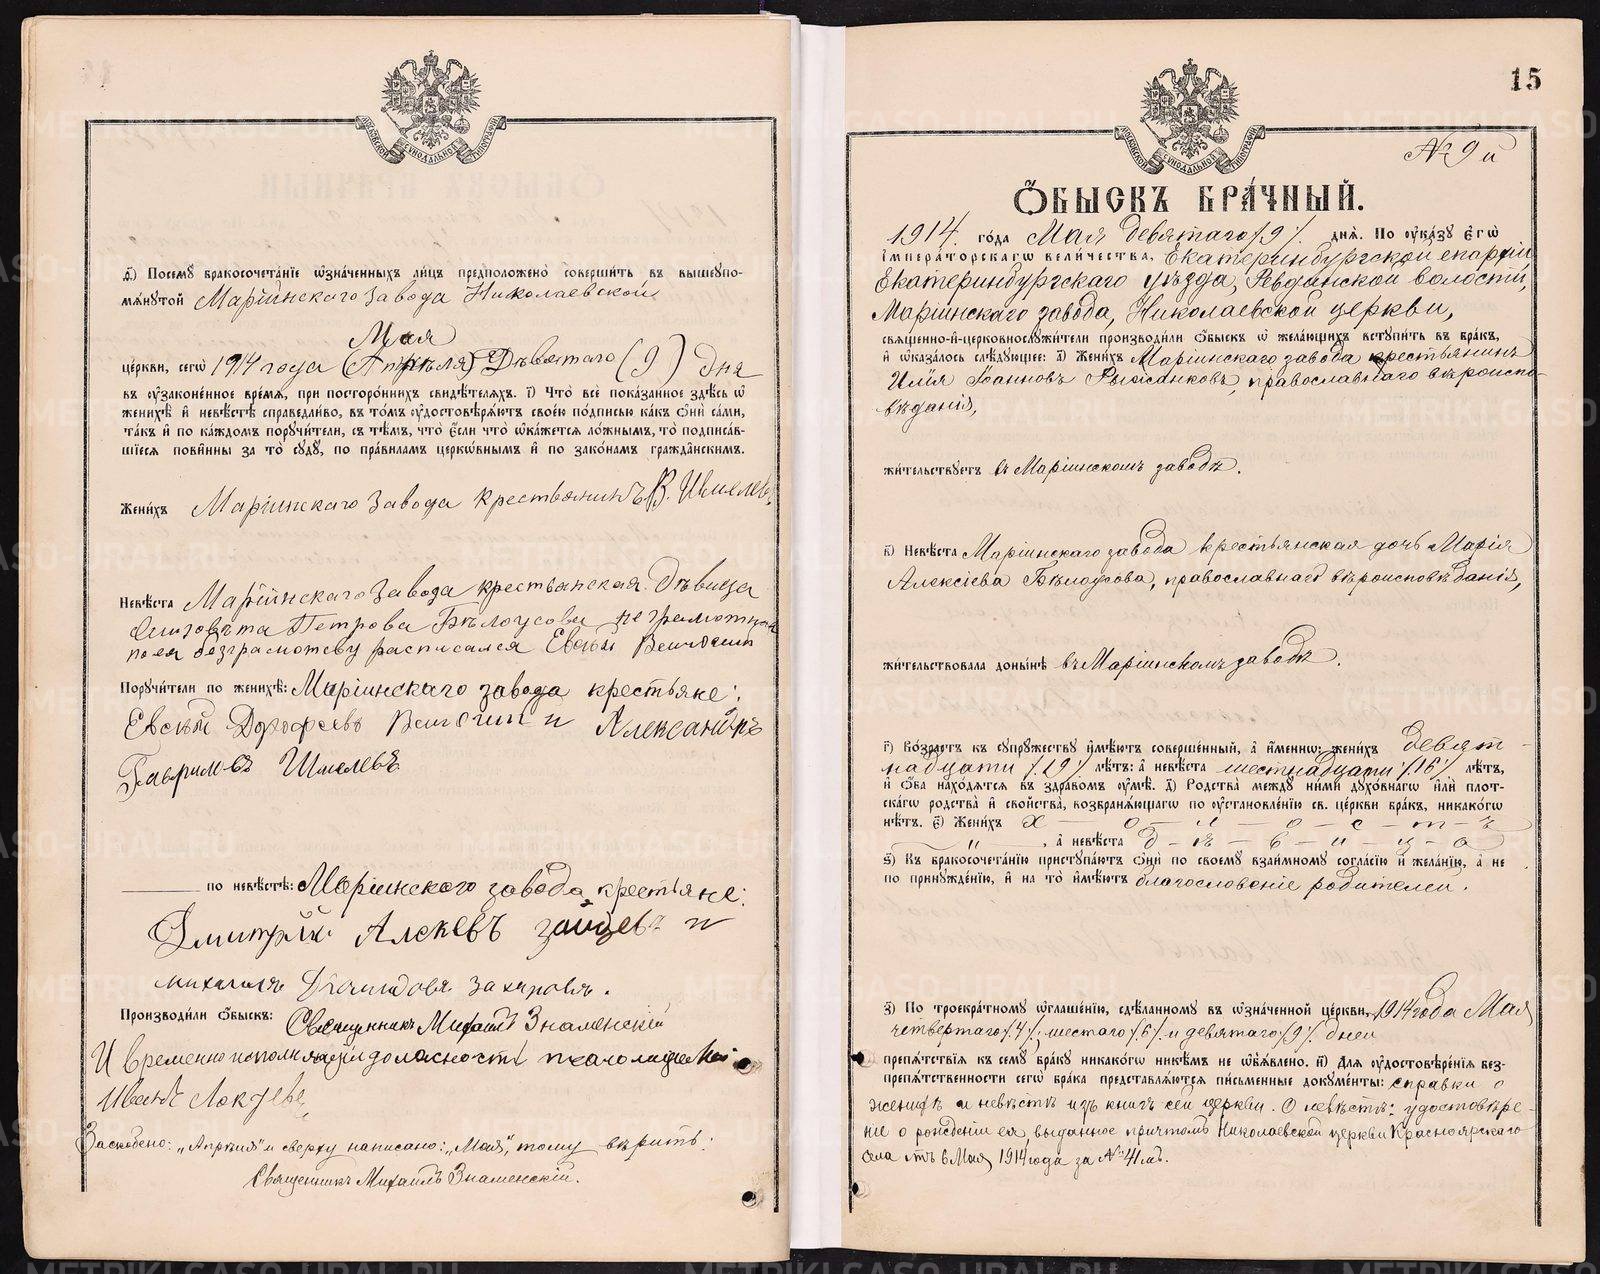 МОСКОВСКОЙ СѴНОДАЛЬНОЙ ТИПОГРАФІИ
д҃) Посему бракосочетаніе означенныхъ лицъ предположено совершить въ вышеупо-
мянутой Маріинскаго Завода Николаевской
Мая
церкви, сегѡ 1914 года (Апрѣля) Дѣвятаго (9) дня
въ узаконенное время, при постороннихъ свидѣтеляхъ. і҃) Что все показанное здѣсь ѡ
женихѣ и невѣстѣ справедливо, въ томъ удостовѣряютъ своею подписью какъ они сами,
такъ и по каждомъ поручители, съ тѣмъ, что если что окажется ложнымъ, то подписав-
шіеся повинны за то суду, по правиламъ церковнымъ и по законамъ гражданскимъ.
Женихъ Маріинскаго Завода крестьянинъ В. Шмелевъ
Невѣста Маріинскаго Завода крестьянская дѣвица
Елизовѣта Петрова Бѣлоусова не грамотная
по ея безграмотеву расписался Евсѣй
Поручители по женихѣ: Маріинскаго завода крестьяне:
Евсѣй Дорофеевъ и Александръ
Гавриловъ Шмелевъ
по невѣстѣ: Маріинского завода крестьяне:
Дмитрій Алекѣевъ Зайцевъ и
Михаилъ Захаровъ.
Производили обыскъ: Священникъ Михаилъ Знаменскій
И временно исполняющій должность псаломщика
Иванъ Локтевъ
Заскоблено: „Апрѣля" и сверху написано: „Мая", тому вѣрить:
Священникъ Михаилъ Знаменскій.
15
МОСКОВСКОЙ СѴНОДАЛЬНОЙ ТИПОГРАФІИ
№ 9й
ОБЫСКЪ БРАЧНЫЙ.
1914. года Мая девятаго /9/. дня. По указу Егѡ
Императорскагѡ величества, Екатеринбургской епархіи
Екатеринбургскаго уѣзда, Ревдинской волости,
Маріинскаго завода, Николаевской церкви,
священно-и-церковнослужители производили обыскъ ѡ желающихъ вступить въ бракъ,
и оказалось слѣдующее: а҃) Женихъ Маріинскаго завода крестьянинъ
Илія Іоанновъ Рыжанковъ, православнаго вѣроиспо-
вѣданія,
жительствуетъ въ Маріинскомъ заводѣ.
в҃) Невѣста Маріинскаго завода крестьянская дочь Марія
Алексіева Бѣлоусова, православнаго вѣроисповѣданія,
жительствовала донынѣ въ Маріинскомъ заводѣ.
г҃) Возрастъ къ супружеству имѣютъ совершенный, а именнѡ: женихъ девят-
надцати /19/ лѣтъ: а невѣста шестнадцати /16/ лѣтъ,
и оба находятся въ здравомъ умѣ. д҃) Родства между ними духовнагѡ или плот-
скагѡ родства и свойства, возбраняющагѡ по установленію св. церкви бракъ, никакогѡ
нѣтъ. е҃) Женихъ х — о — л — о — с — т — ъ
— „ —, а невѣста д — ѣ — в — и — ц — а
ѕ҃) Къ бракосочетанію приступаютъ они по своему взаимному согласію и желанію, а не
по принужденію, и на то имѣютъ благословеніе родителей.
з҃) По троекратному оглашенію, сдѣланному въ означенной церкви, 1914 года Мая
четвертаго /4/, шестаго /6/ и девятаго /9/ дней
препятствія къ сему браку никакогѡ никѣмъ не объявлено. и҃) Для удостовѣренія без-
препятственности сегѡ брака представляются письменные документы: справки о
женихѣ и невѣстѣ изъ книгъ сей церкви. О невѣстѣ: удостовѣре-
ніе о рожденіи ея, выданное причтомъ Николаевской церкви Красноярскаго
села отъ 6 Мая 1914 года за № 41мъ.